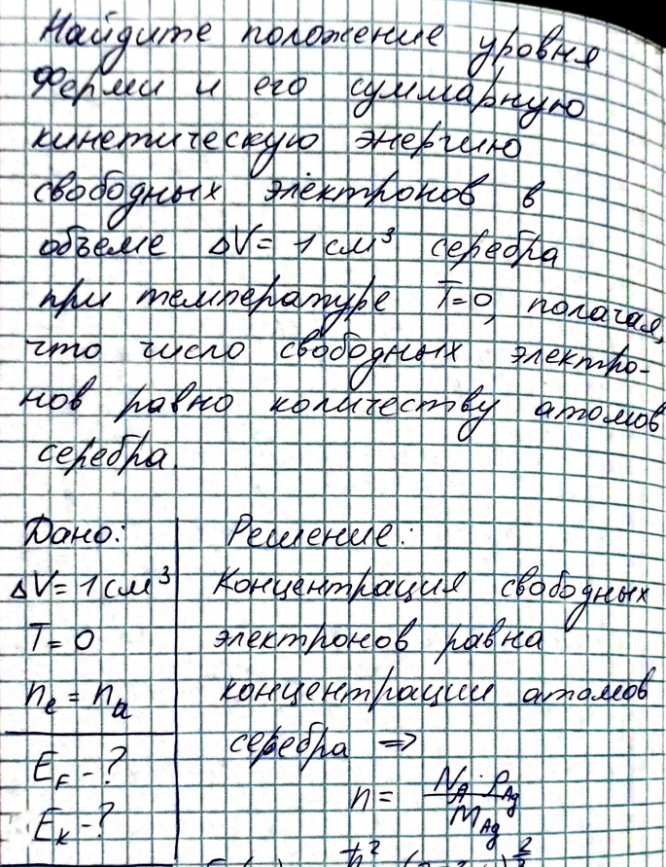 Найдите положение уровня
Ферми и его суммарную
кинетическую энергию
свободных электронов в
объеме ΔV = 1 см³ серебра
при температуре T=0, полагая,
что число свободных электро-
нов равно количеству атомов
серебра.
Дано:
ΔV = 1 см³
T = 0
nₑ = nₐ
E_F - ?
E_K - ?
Решение:
Концентрация свободных
электронов равна
концентрации атомов
серебра ⇒
n = N_A · ρ_Ag / M_Ag